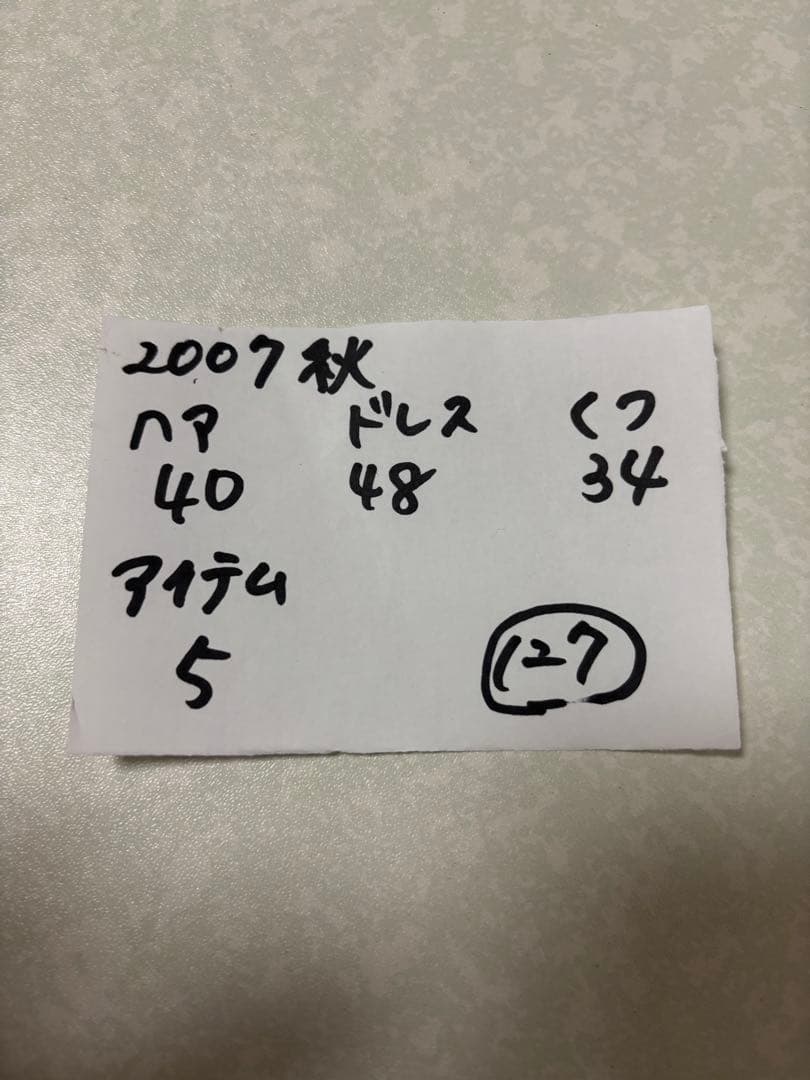 2007秋
ヘア ドレス くつ
40 48 34
アイテム
5
127